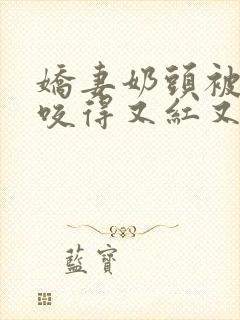 嬌妻奶頭被
咬得又紅又
藍寶